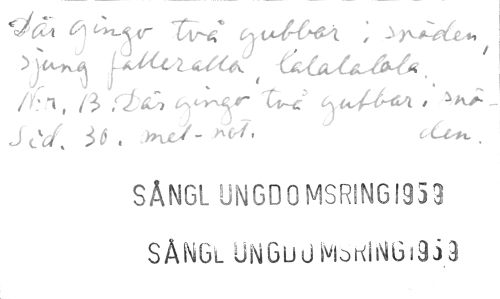 Där gingo två gubbar i snöden,
sjung falleralla, lalalalala.
N:r. 13. Där gingo två gubbar i snö-
Sid. 30. mel-not. den.
SÅNGL UNGDOMSRING 1959
SÅNGL UNGDOMSRING 1959